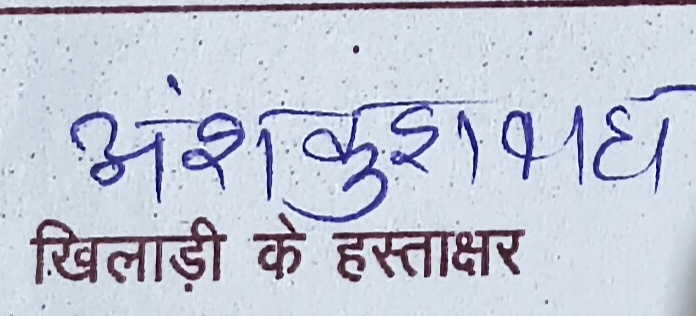 अंश कुशवाह
खिलाड़ी के हस्ताक्षर